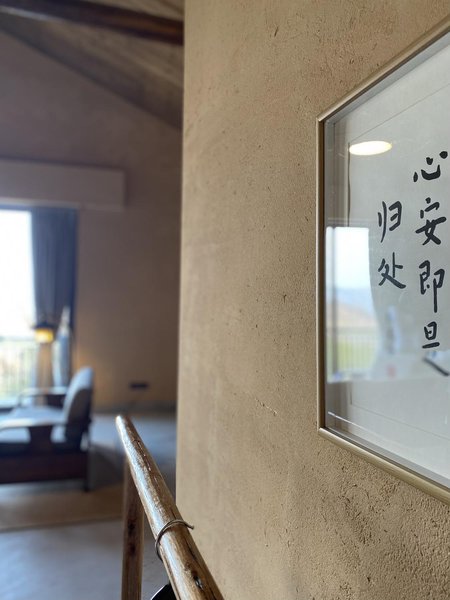 心安即是
归处